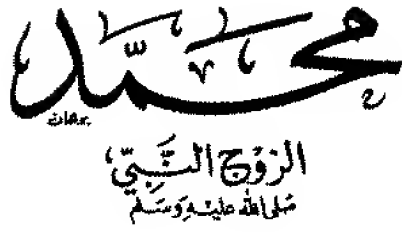 محمّد
برهان
الزوج النّبيّ،
صلى الله عليه وسلم